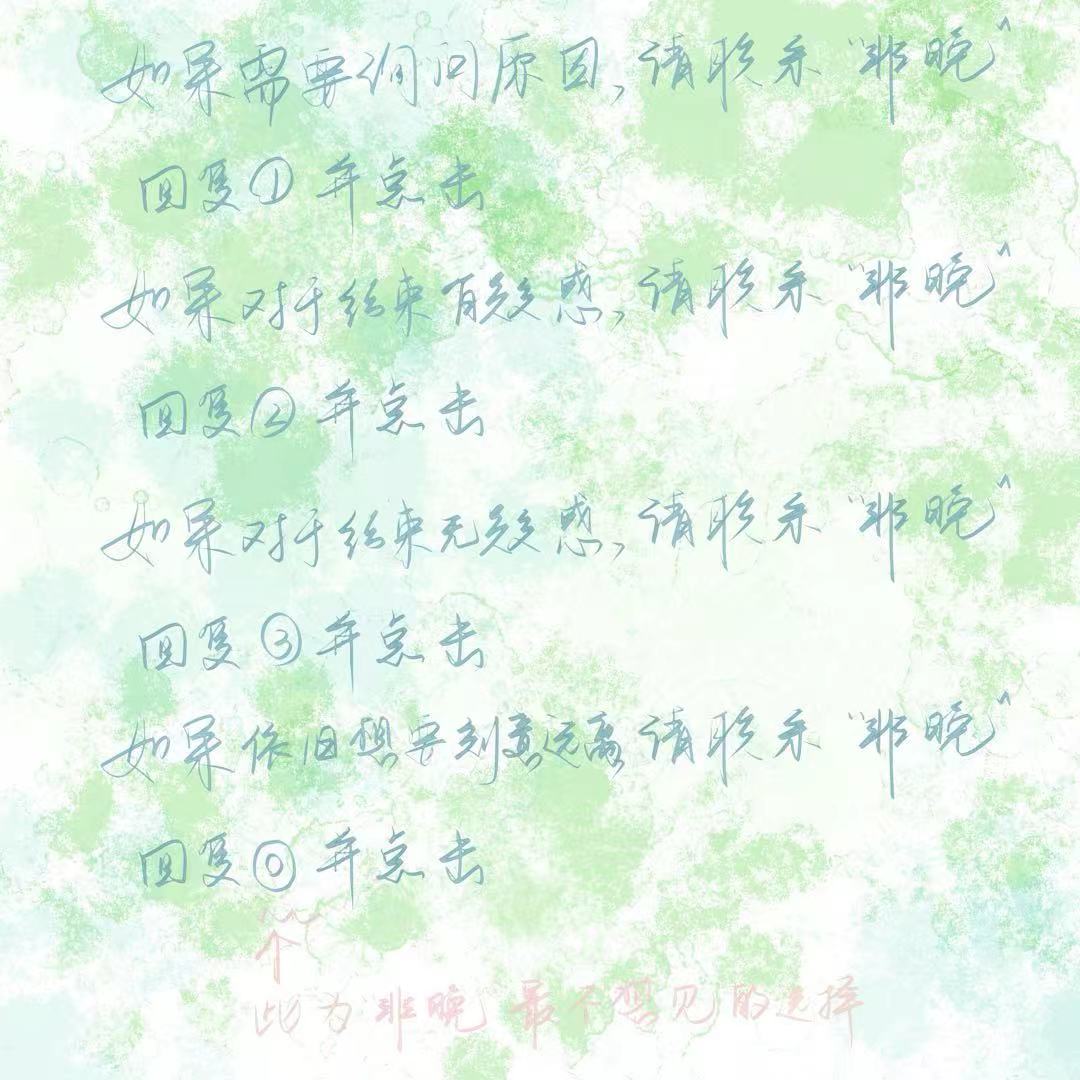 如果需要询问原因,请联系“非晚”
回复①并点击
如果对于结束有疑惑,请联系“非晚”
回复②并点击
如果对于结束无疑惑,请联系“非晚”
回复③并点击
如果依旧想要刻意远离请联系“非晚”
回复⓪并点击
此为非晚 最不想见的选择